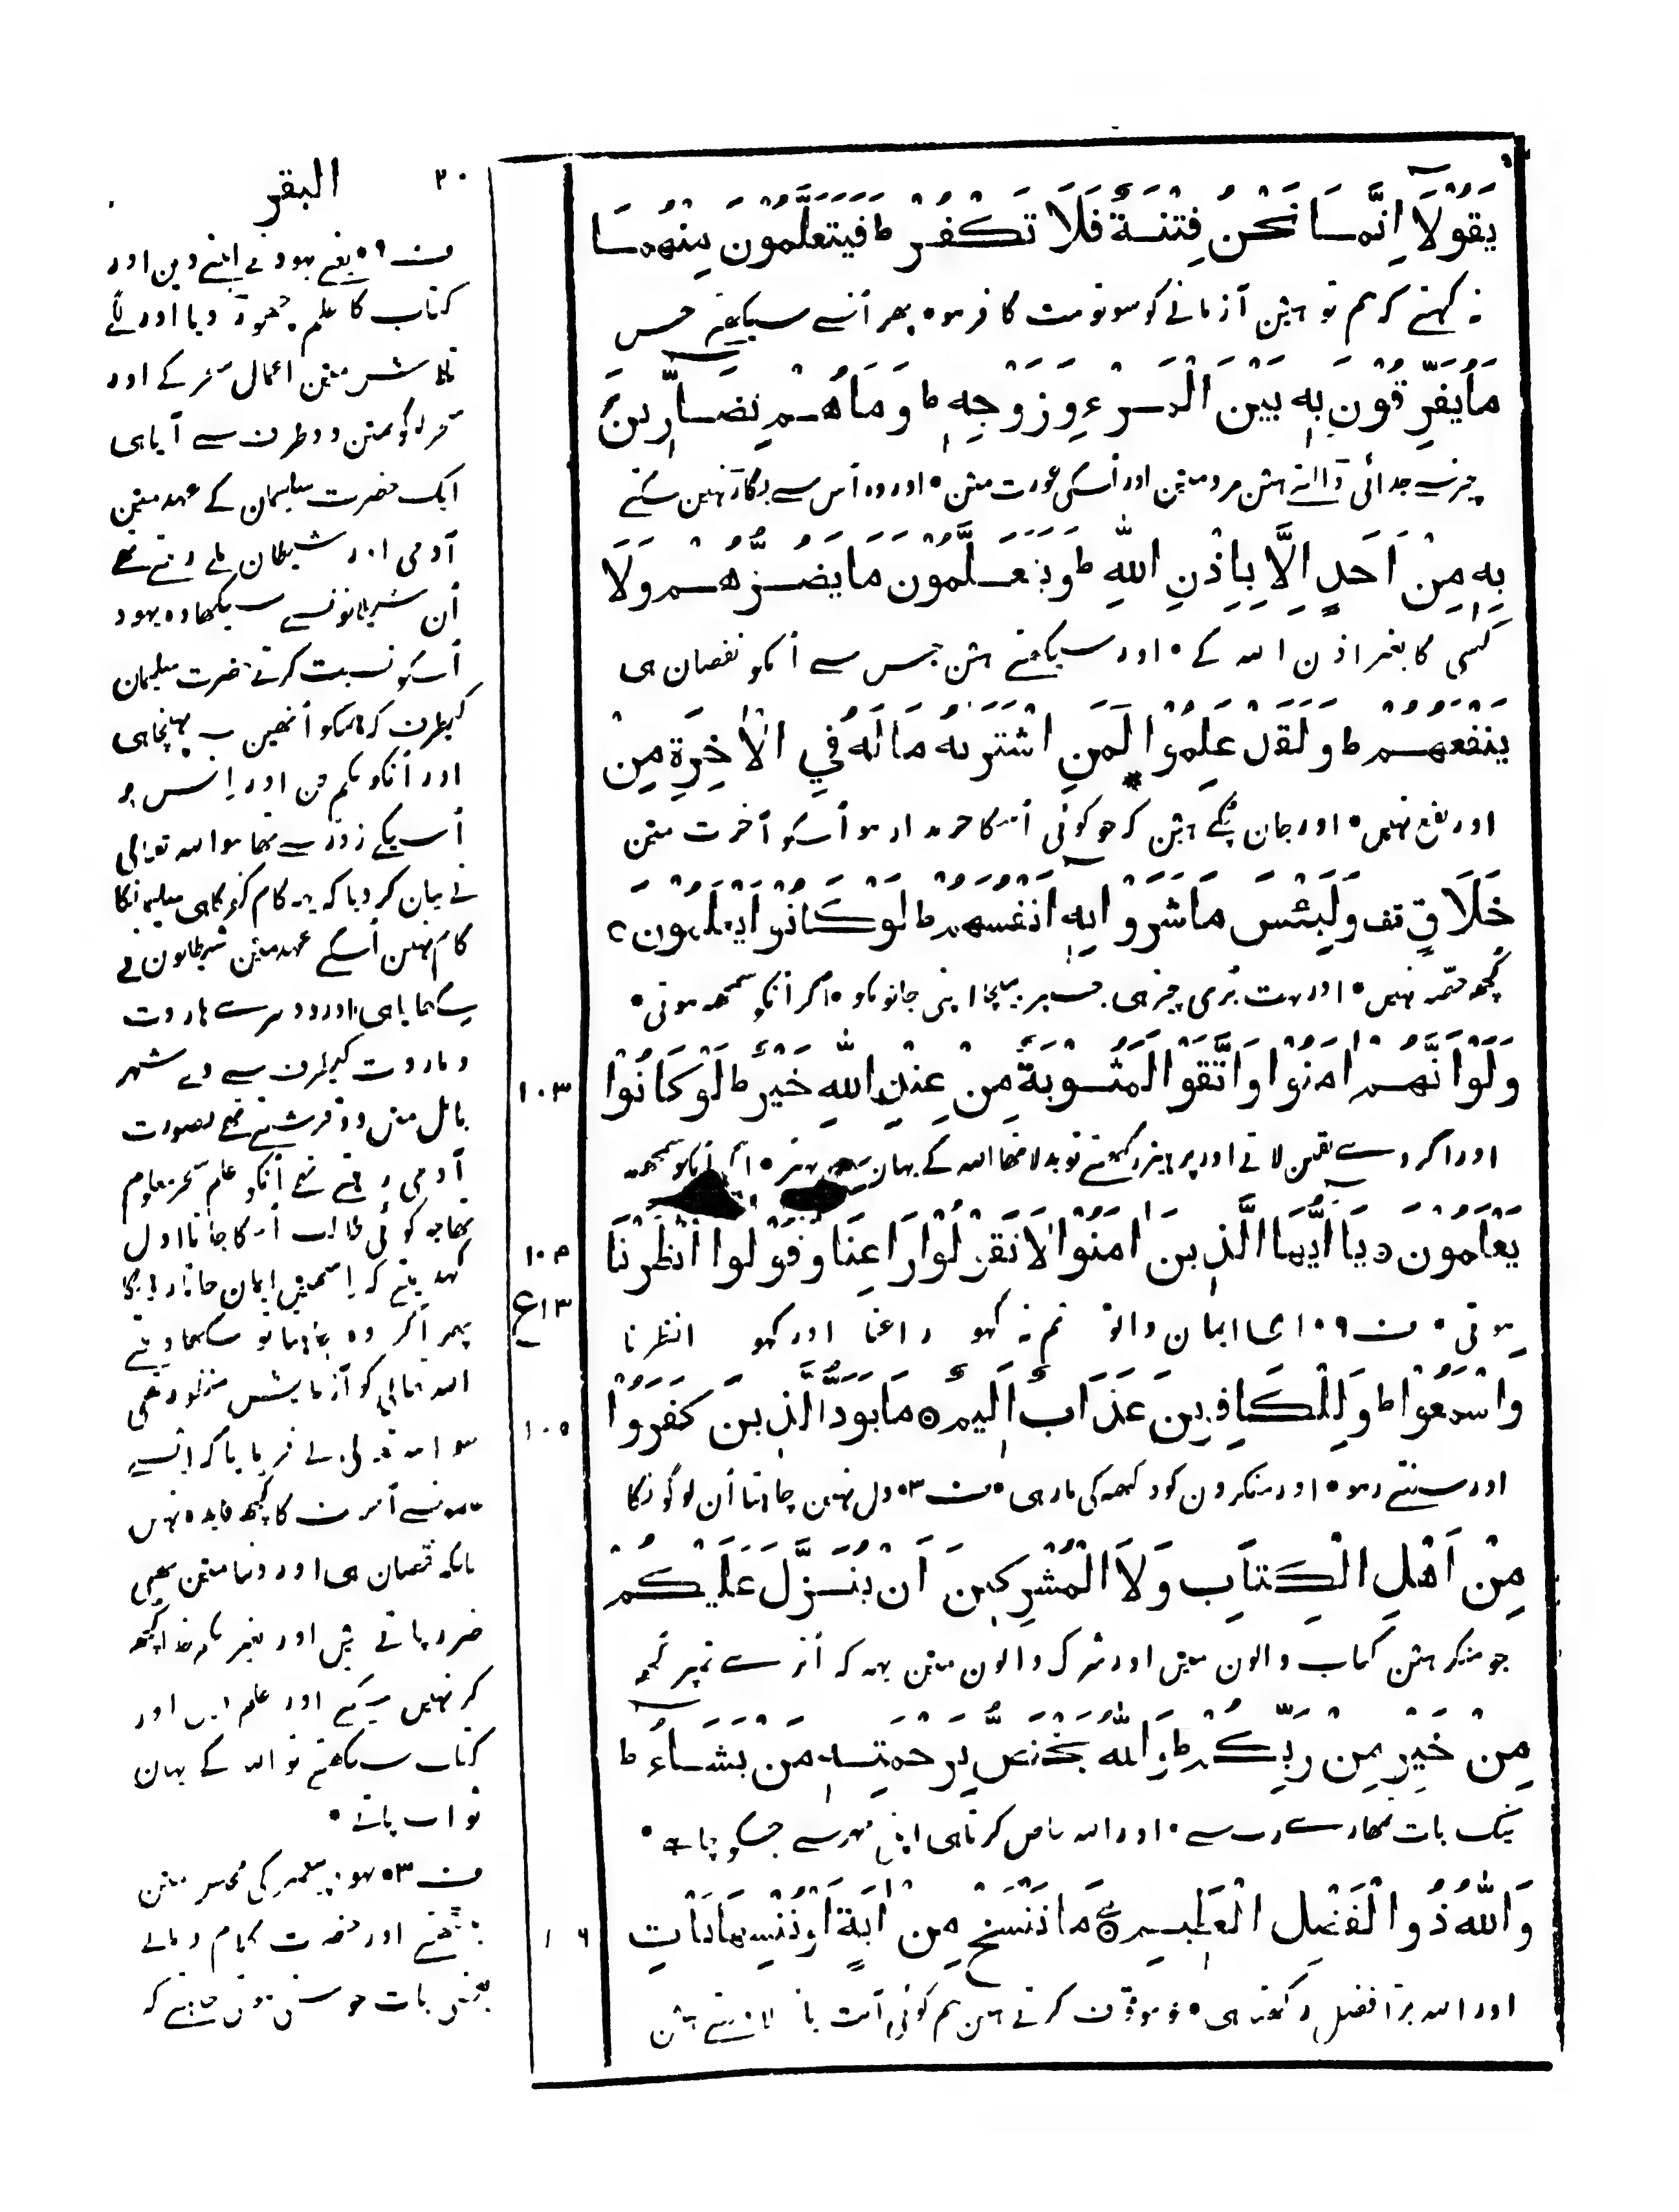 البقر ٣٠
يَقُوْلَآ اِنَّمَا نَحْنُ فِتْنَةٌ فَلَا تَكْفُرْ ط فَيَتَعَلَّمُوْنَ مِنْهُمَا
نہ کہتے کہ ہم تو ہین آزمانے کو سو تو مت کافر ہو • پھر اُنسے سیکھتے جس
مَا يُفَرِّقُوْنَ بِهٖ بَيْنَ الْمَرْءِ وَزَوْجِهٖ ط وَمَا هُمْ بِضَارِّيْنَ
چیز سے جدائی ڈالتے ہین مرد مین اور اُسکی عورت مین • اور وہ اُس سے بگاڑ نہین سکتے
بِهٖ مِنْ اَحَدٍ اِلَّا بِاِذْنِ اللّٰهِ ط وَيَتَعَلَّمُوْنَ مَا يَضُرُّهُمْ وَلَا
کسی کا بغیر اذن الله کے • اور سیکھتے ہین جس سے اُنکو نقصان ہی
يَنْفَعُهُمْ ط وَلَقَدْ عَلِمُوْا لَمَنِ اشْتَرٰىهُ مَا لَهٗ فِي الْاٰخِرَةِ مِنْ
اور نفع نہین • اور جان چکے ہین کہ جو کوئی اُسکا خریدار ہو اُسکو آخرت مین
خَلَاقٍ قف وَلَبِئْسَ مَا شَرَوْا بِهٖٓ اَنْفُسَهُمْ ط لَوْ كَانُوْا يَعْلَمُوْنَ
کچھ حصّہ نہین • اور بہت بُری چیز ہی جسپر بیچا اپنی جانونکو • اگر اُنکو سمجھ ہوتی •
وَلَوْ اَنَّهُمْ اٰمَنُوْا وَاتَّقَوْا لَمَثُوْبَةٌ مِّنْ عِنْدِ اللّٰهِ خَيْرٌ ط لَوْ كَانُوْا ١٠٣
اور اگر وے یقین لاتے اور پرہیز رکھتے تو بدلا تھا الله کے یہان بہتر • اگر اُنکو سمجھ
يَعْلَمُوْنَ يَا اَيُّهَا الَّذِيْنَ اٰمَنُوْا لَا تَقُوْلُوْا رَاعِنَا وَقُوْلُوا انْظُرْنَا ١٠٤
ع١٣
ہوتی • ف ١٠٩ ای ایمان والو تم نہ کہو راعنا اور کہو انظرنا
وَاسْمَعُوْا ط وَلِلْكَافِرِيْنَ عَذَابٌ اَلِيْمٌ ۝ مَا يَوَدُّ الَّذِيْنَ كَفَرُوْا ١٠٥
اور سنتے رہو • اور منکرون کو دکھہ کی مار ہی • ف ٥٣ دل نہین چاہتا اُن لوگونکا
مِنْ اَهْلِ الْكِتَابِ وَلَا الْمُشْرِكِيْنَ اَنْ يُنَزَّلَ عَلَيْكُمْ
جو منکر ہین کتاب والون مین اور شرک والون مین یہہ کہ اُترے تمپر کچھ
مِنْ خَيْرٍ مِّنْ رَّبِّكُمْ ط وَاللّٰهُ يَخْتَصُّ بِرَحْمَتِهٖ مَنْ يَّشَآءُ ط
نیک بات تمھارے رب سے • اور الله خاص کرتا ہی اپنی مہر سے جسکو چاہے •
وَاللّٰهُ ذُوالْفَضْلِ الْعَظِيْمِ ۝ مَا نَنْسَخْ مِنْ اٰيَةٍ اَوْ نُنْسِهَا نَاْتِ ١٠٦
اور الله بڑا فضل رکھتا ہی • جو موقوف کرتے ہین ہم کوئی آیت یا بھلا دیتے ہین
ف ٥٩ یعنے یہود نے اپنے دین اور
کتاب کا علم چھوڑ دیا اور لگے
تلاش مین اعمال سحر کے اور
سحر لوگونمین دو طرف سے آیا ہی
ایک حضرت سلیمان کے عہد مین
آدمی اور شیطان ملے رہتے تھے
اُن شیطانونسے سیکھا وہ یہود
اُسکو نسبت کرتے حضرت سلیمان
کیطرف کہ ہمکو اُنھین سے پہنچا ہی
اور اُنکو حکم جن اور اِنس پر
اُسیکے زور سے تھا سو الله تعالی
نے بیان کر دیا کہ یہ کام کفر کا ہی سلیمانکا
کام نہین اُسکے عہد مین شیطانون نے
سکھایا ہی اور دوسرے ہاروت
و ماروت کیطرف سے وے شہر
بابل مین دو فرشتے تھے بصورت
آدمی رہتے تھے اُنکو علم سحر معلوم
تھا جو کوئی طالب اُسکا جاتا اول
کہدیتے کہ اِسمین ایمان جاتا رہیگا
پھر اگر وہ چاہتا تو سکھا دیتے
الله تعالی کو آزمایش منظور تھی
سو الله تعالی نے فرمایا کہ ایسے
علمونسے آخرت کا کچھ فایدہ نہین
بلکہ نقصان ہی اور دنیا مین بھی
ضرر پاتے ہین اور بغیر حکم خدا کچھ
کر نہین سکتے اور علم دین اور
کتاب سیکھتے تو الله کے یہان
ثواب پاتے •
ف ٥٣ یہود پیغمبر کی مجلس مین
بیٹھتے اور حضرت کلام فرماتے
بعضی بات جو نہ سنی ہوتی چاہتے کہ